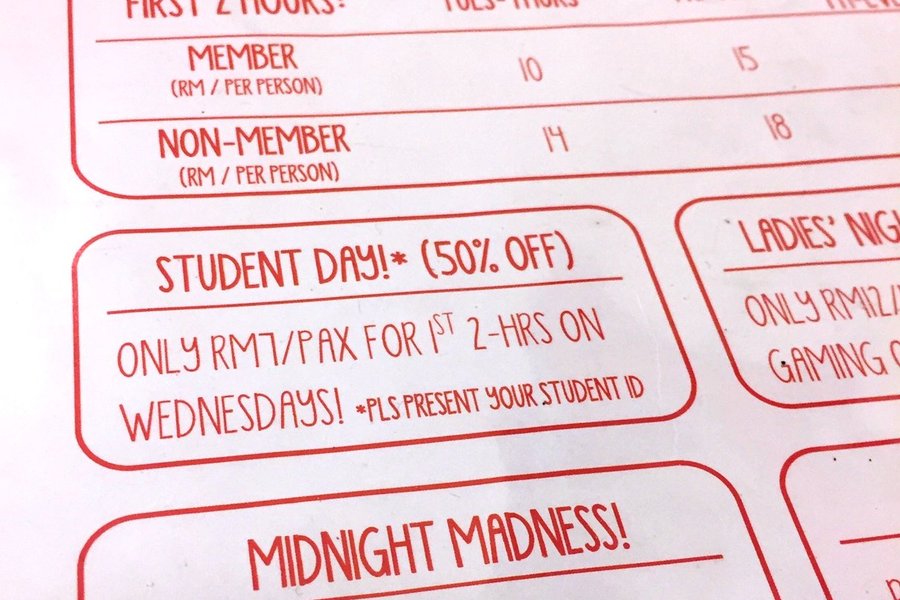 FIRST 2 HOURS:
TUES-THURS
MEMBER 10 15
(RM / PER PERSON)
NON-MEMBER 14 18
(RM / PER PERSON)
STUDENT DAY!* (50% OFF)
ONLY RM7/PAX FOR 1ST 2-HRS ON
WEDNESDAYS! *PLS PRESENT YOUR STUDENT ID
LADIES'
ONLY RM12/
GAMING
MIDNIGHT MADNESS!